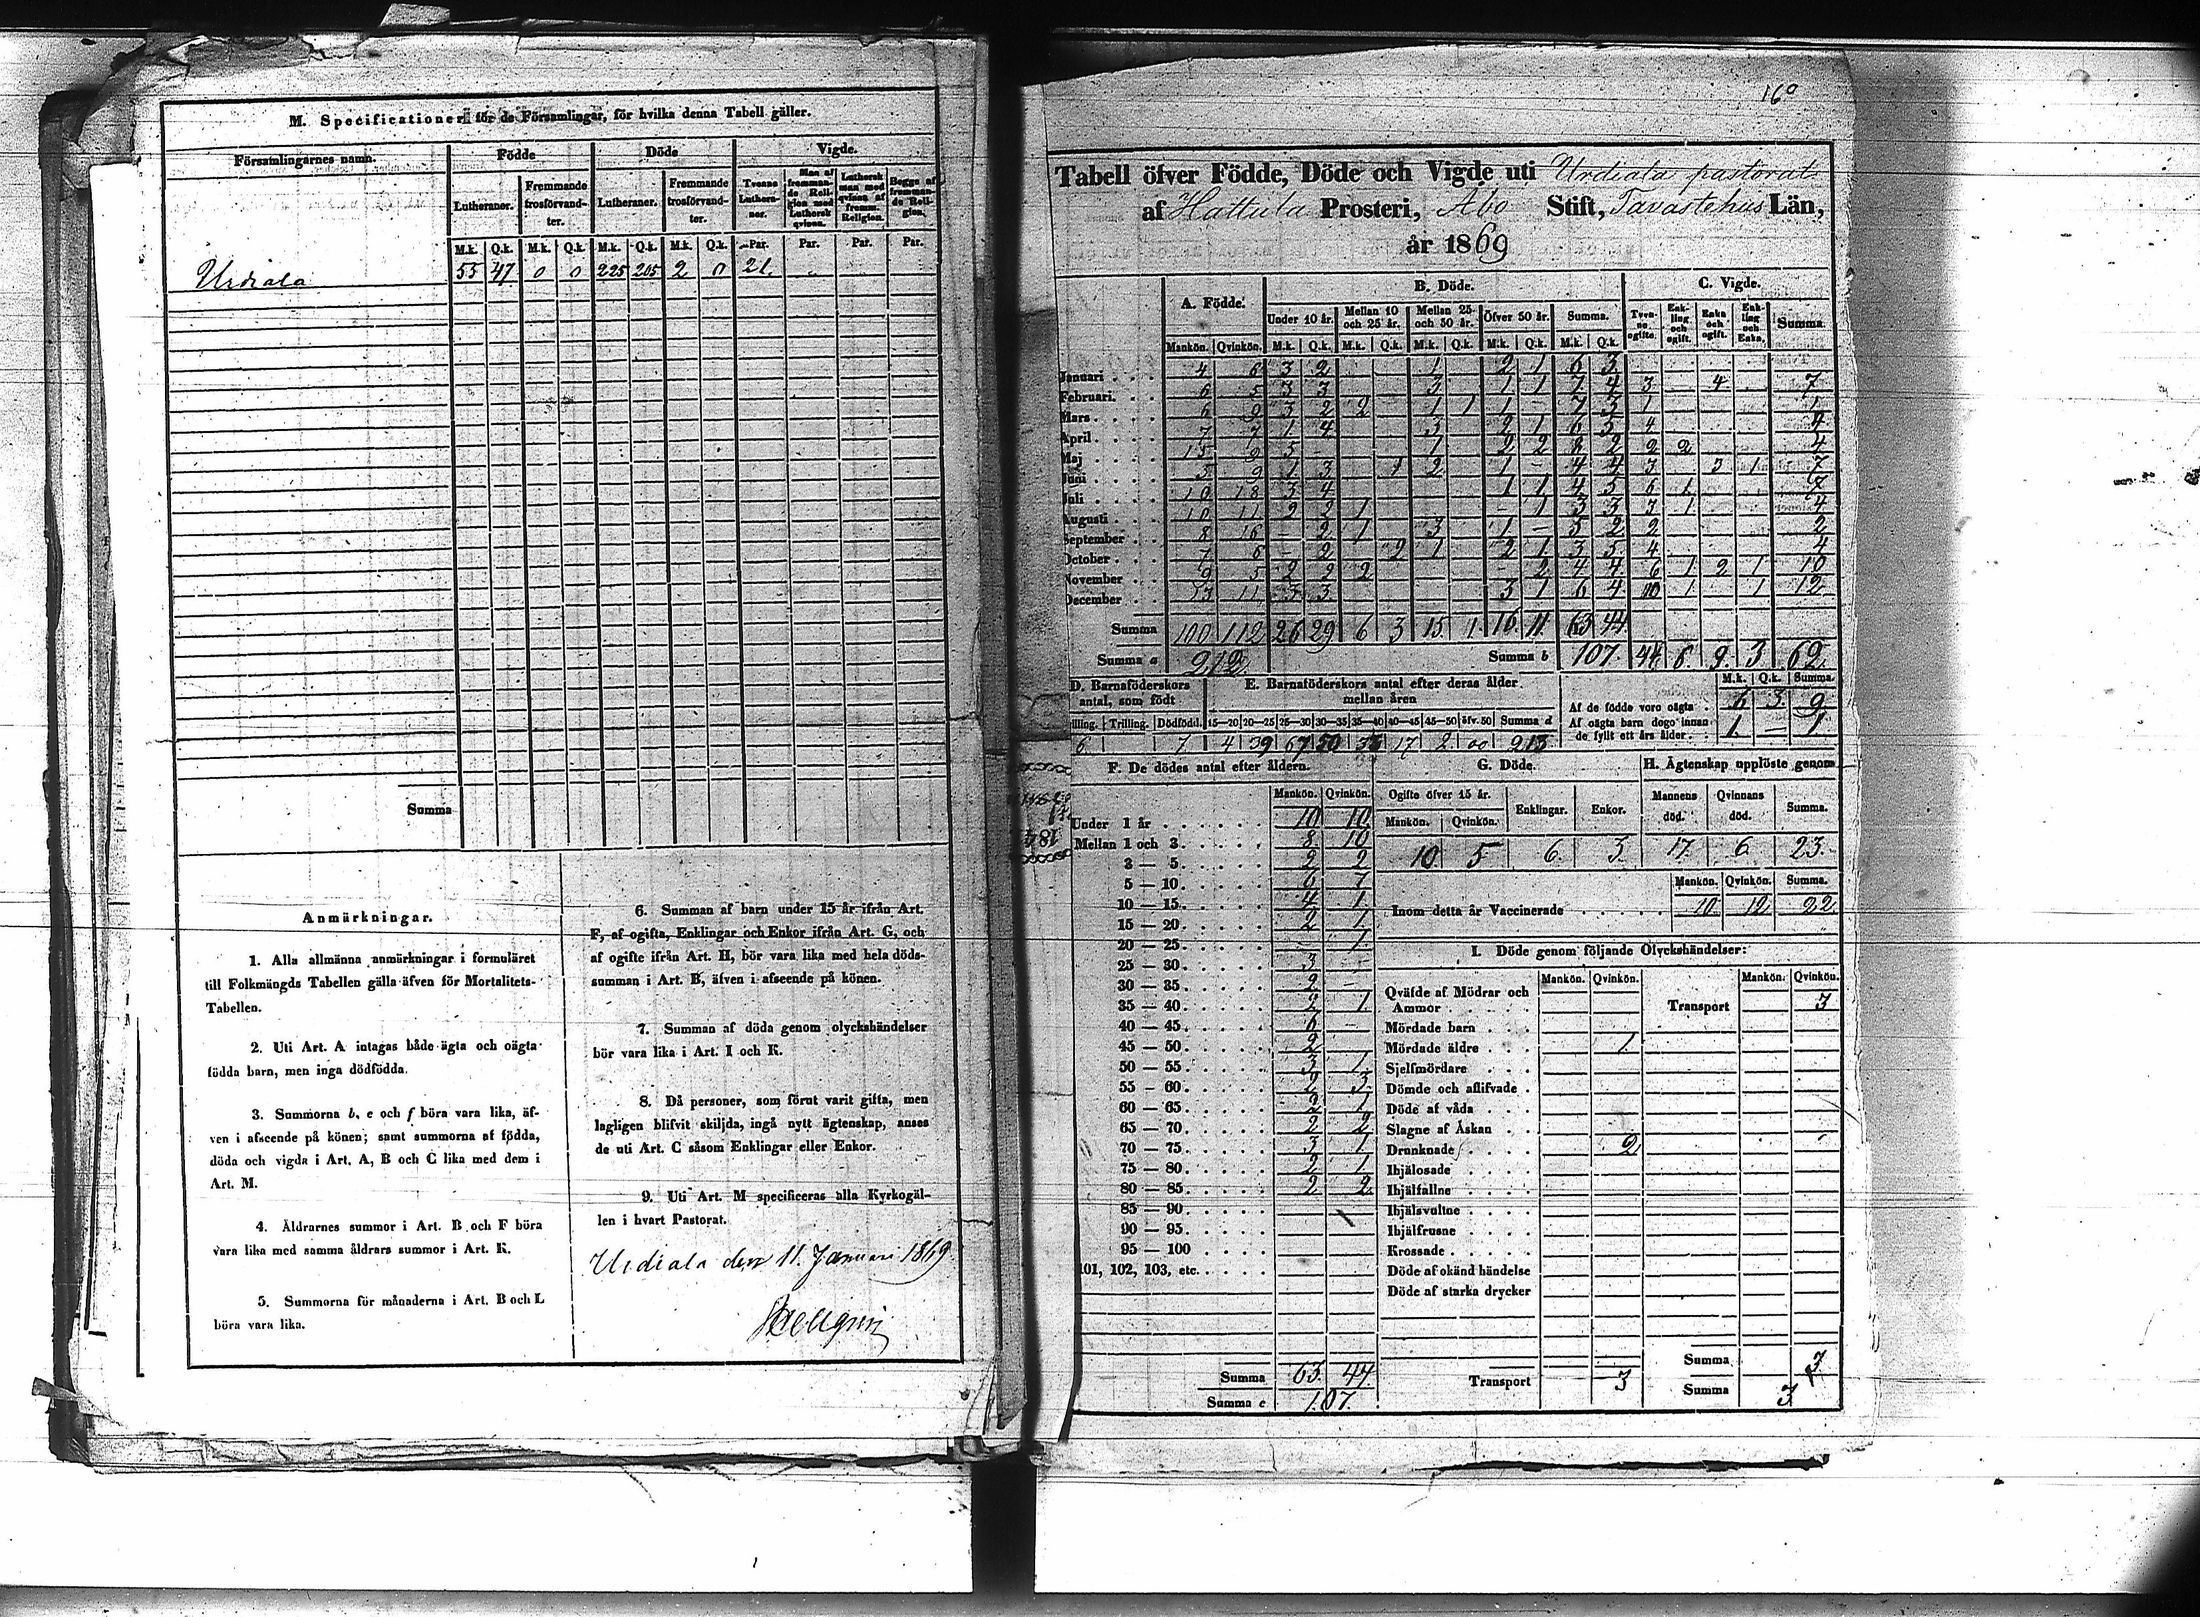 M. Specificationer för de Församlingar, för hvilka denna Tabell gäller.
Församlingarnes namn. Födde Döde Vigde.
Lutheraner. Fremmande trosförvandter. Lutheraner. Fremmande trosförvandter. Tvenne Lutheraner. Man af fremmande Religion med Luthersk qvinna. Luthersk man med qvinna af fremm. Religion. Begge af fremmande Religion.
M.k. Q.k. M.k. Q.k. M.k. Q.k. M.k. Q.k. Par. Par. Par. Par.
Urdiala 55 47 0 0 225 205 2 0 21
Summa
Anmärkningar.
1. Alla allmänna anmärkningar i formuläret
till Folkmängds Tabellen gälla äfven för Mortalitets-
Tabellen.
2. Uti Art. A intagas både ägta och oägta
födda barn, men inga dödfödda.
3. Summorna b, e och f böra vara lika, äf-
ven i afseende på könen; samt summorna af födda,
döda och vigda i Art. A, B och C lika med dem i
Art. M.
4. Åldrarnes summor i Art. B och F böra
vara lika med samma åldrars summor i Art. K.
5. Summorna för månaderna i Art. B och L
böra vara lika.
6. Summan af barn under 15 år ifrån Art.
F, af ogifta, Enklingar och Enkor ifrån Art. G, och
af ogifte ifrån Art. H, bör vara lika med hela döds-
summan i Art. B, äfven i afseende på könen.
7. Summan af döda genom olyckshändelser
bör vara lika i Art. I och K.
8. Då personer, som förut varit gifta, men
lagligen blifvit skiljda, ingå nytt ägtenskap, anses
de uti Art. C såsom Enklingar eller Enkor.
9. Uti Art. M specificeras alla Kyrkogäl-
len i hvart Pastorat.
Urdiala den 11. Januari 1869.
160
Tabell öfver Födde, Döde och Vigde uti Urdiala pastorat
af Hattula Prosteri, Åbo Stift, Tavastehus Län,
år 1869
A. Födde. B. Döde. C. Vigde.
Under 10 år. Mellan 10 och 25 år. Mellan 25 och 50 år. Öfver 50 år. Summa. Tvenne ogifte. Enkling och ogift. Enka och ogift. Enkling och Enka. Summa.
Mankön. Qvinkön. M.k. Q.k. M.k. Q.k. M.k. Q.k. M.k. Q.k. M.k. Q.k.
Januari 4 6 3 2 1 2 1 6 3
Februari. 6 5 3 3 3 1 1 7 4 3 4 7
Mars 6 9 3 2 2 1 1 1 7 3 1 1
April 7 7 1 4 3 2 1 6 5 4 4
Maj 15 9 5 1 2 2 8 2 2 2 4
Juni 5 9 1 3 1 2 1 - 4 4 3 3 1 7
Juli 10 18 3 4 1 1 4 5 6 1 7
Augusti 10 11 2 2 1 - 1 3 3 3 1 4
September 8 16 - 2 1 3 1 - 5 2 2 2
October 7 6 - 2 2 1 2 1 3 5 4 4
November 9 5 2 2 2 - 2 4 4 6 1 2 1 10
December 13 11 3 3 3 1 6 4 10 1 1 12
Summa 100 112 26 29 6 3 15 1 16 11 63 44
Summa a 212 Summa b 107. 44 6. 9. 3 62
D. Barnaföderskors antal, som födt
E. Barnaföderskors antal efter deras ålder mellan åren
Trilling. Dödfödd. 15—20 20—25 25—30 30—35 35—40 40—45 45—50 öfv. 50 Summa d
6 7 4 39 67 50 35 17 2 00 213
M.k. Q.k. Summa
Af de födde voro oägta 6 3 9
Af oägta barn dogo innan de fyllt ett års ålder 1. — 1
F. De dödes antal efter åldern.
Mankön. Qvinkön.
Under 1 år 10 10
Mellan 1 och 3 8 10
3 — 5 2 2
5 — 10 6 7
10 — 15 4 1
15 — 20 2 1
20 — 25 - 1
25 — 30 3 -
30 — 35 2 -
35 — 40 2 1
40 — 45 6 -
45 — 50 2
50 — 55 3 1
55 — 60 2 3
60 — 65 2 1
65 — 70 2 2
70 — 75 3 1
75 — 80 2 1
80 — 85 2 2
85 — 90
90 — 95
95 — 100
101, 102, 103, etc.
Summa 63 44
Summa e 107.
G. Döde.
Ogifte öfver 15 år. Enklingar. Enkor.
Mankön. Qvinkön.
10 5 6 3
H. Ägtenskap upplöste genom
Mannens död. Qvinnans död. Summa.
17 6 23
Mankön. Qvinkön. Summa.
Inom detta år Vaccinerade 10 12 22
I. Döde genom följande Olyckshändelser:
Mankön. Qvinkön. Mankön. Qvinkön.
Qväfde af Mödrar och Ammor
Transport 3
Mördade barn
Mördade äldre 1
Sjelfmördare
Dömde och aflifvade
Döde af våda
Slagne af Åskan
Drunknade 2
Ihjälosade
Ihjälfallne
Ihjälsvultne
Ihjälfrusne
Krossade
Döde af okänd händelse
Döde af starka drycker
Summa 3
Transport 3 Summa 3